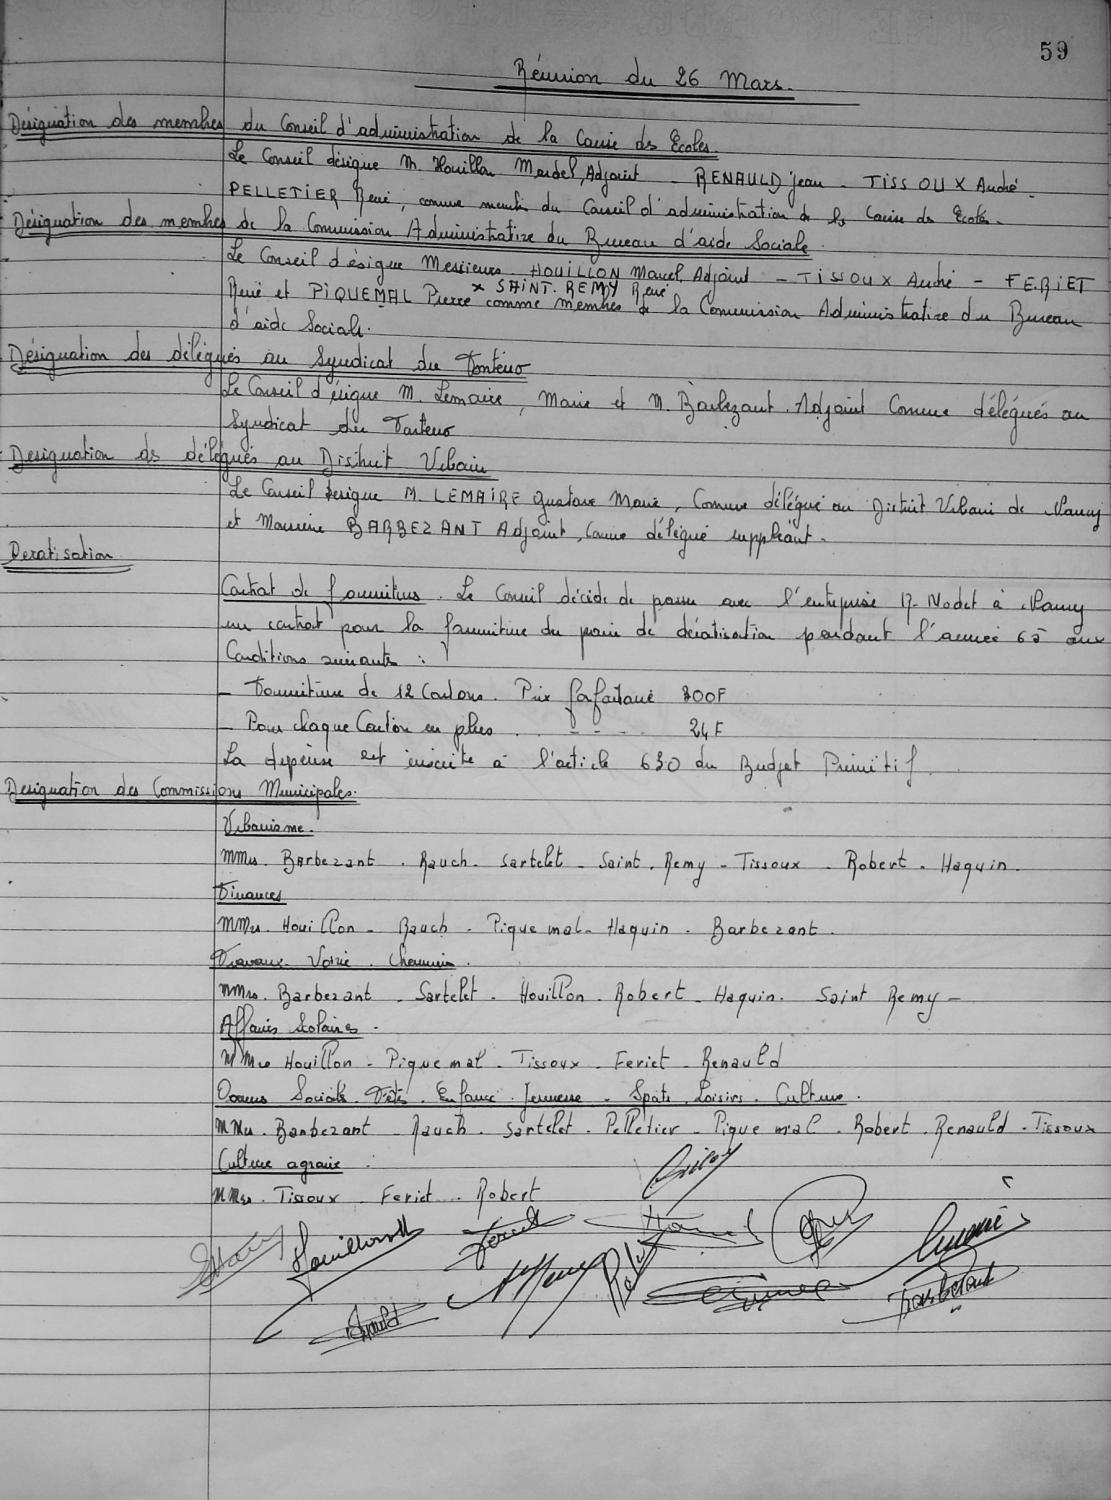 59
Réunion du 26 Mars.
Désignation des membres du Conseil d'administration de la Caisse des Ecoles.
Le Conseil désigne M. Houillon Marcel, Adjoint - RENAULD Jean - TISSOUX André.
PELLETIER René, comme membre du Conseil d'administration de la Caisse des Ecoles.
Désignation des membres de la Commission Administrative du Bureau d'aide Sociale.
Le Conseil désigne Messieurs HOUILLON Marcel, Adjoint - TISSOUX André - FERIET
x SAINT. REMY René
René et PIQUEMAL Pierre comme membres de la Commission Administrative du Bureau
d'aide Sociale.
Désignation des délégués au Syndicat du
Le Conseil désigne M. Lemaire, Maire et M. Barbezant. Adjoint Comme délégués au
Syndicat du
Designation des délégués au District Urbain
Le Conseil designe M. LEMAIRE Gustave Maire, Comme délégué au District Urbain de Nancy
et Monsieur BARBEZANT Adjoint, comme délégué suppléant.
Deratisation
Contrat de fournitures. Le Conseil décide de passer avec l'entreprise Nodet à Nancy
un contrat pour la fourniture du de dératisation pendant l'année 65 aux
Conditions suivantes :
- Fourniture de 12 Cartons. Prix forfaitaire 300F
- Pour chaque Carton en plus . - - - . 24F
La dépense est inscrite à l'article 630 du Budget Primitif.
Designation des Commissions Municipales.
Urbanisme.
MMrs. Barbezant. Rauch. Sartelet - Saint. Remy - Tissoux. Robert. Haquin.
Finances
MMrs. Houillon - Rauch. Piquemal - Haquin. Barbezant.
Travaux. Voirie. Chemins.
MMrs. Barbezant - Sartelet. Houillon. Robert - Haquin. Saint Remy -
Affaires Scolaires.
MMrs Houillon - Piquemal. Tissoux. Feriet - Renauld
Oeuvres Sociales. Fêtes. Enfance. Jeunesse - Sports. Loisirs. Culture.
MMrs. Barbezant - Rauch. Sartelet. Pelletier - Piquemal. Robert. Renauld - Tissoux
Culture agraire :
MMrs. Tissoux. Feriet. Robert
Houillon
Feriet
Renauld
Barbezant